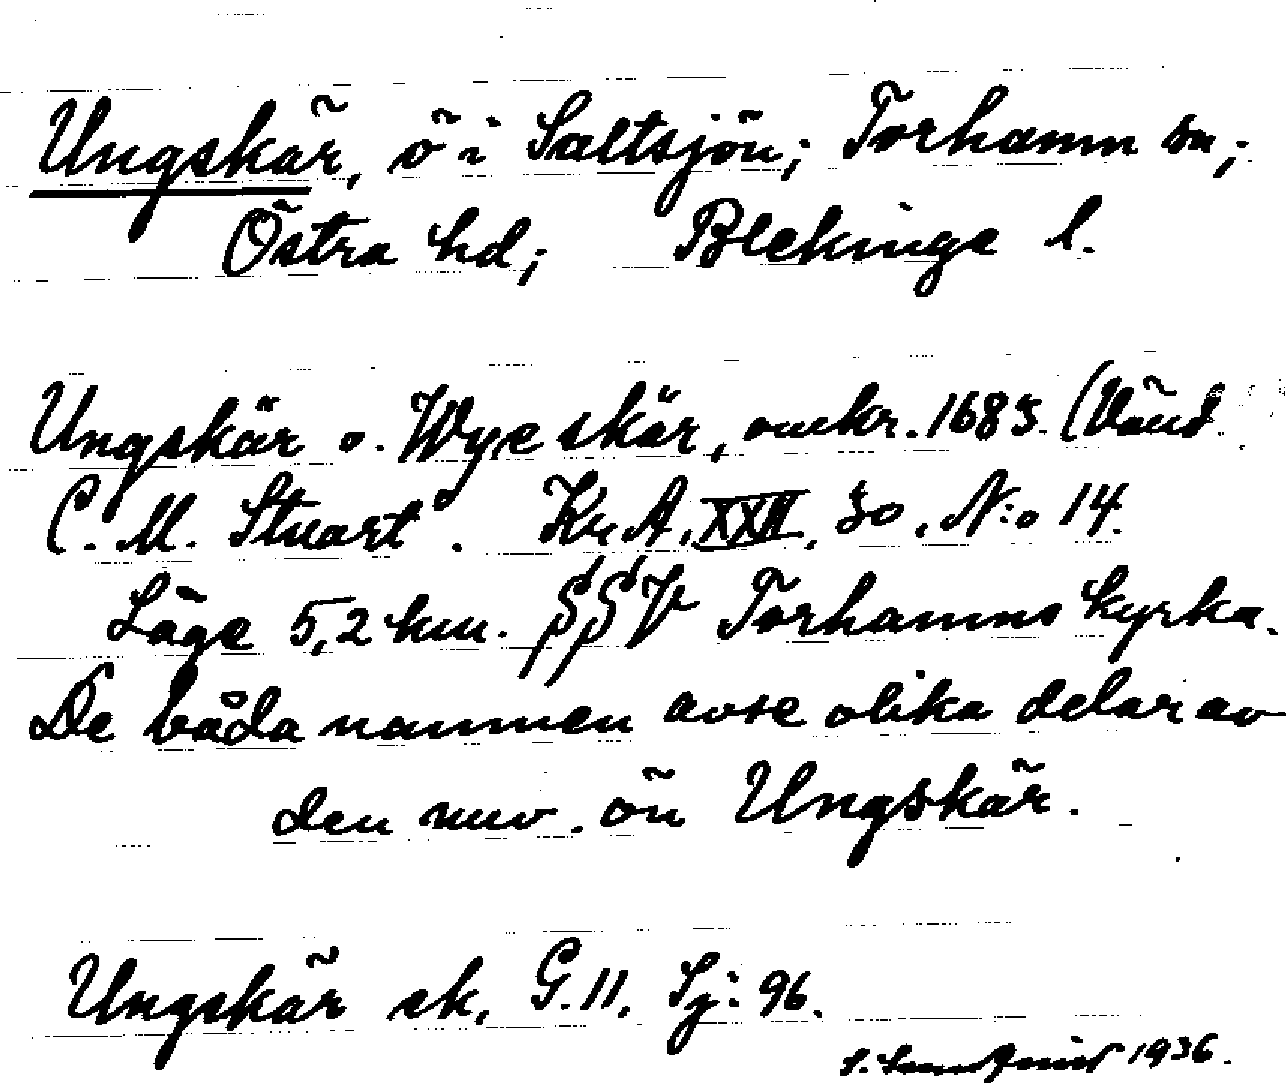 Ungskär, ö i Saltsjön; Torhamn sn;
Östra hd; Blekinge l.
Ungskär o. Wyeskär, omkr. 1683. (Vänd.
C. M. Stuart". Kr. A. XXII, 30, N:o 14.
Läge 5,2 km. SSV Torhamns kyrka.
De båda namnen avse olika delar av
den nuv. ön Ungskär.
Ungskär sk. G. 11. Sj: 96.
S. 1936.